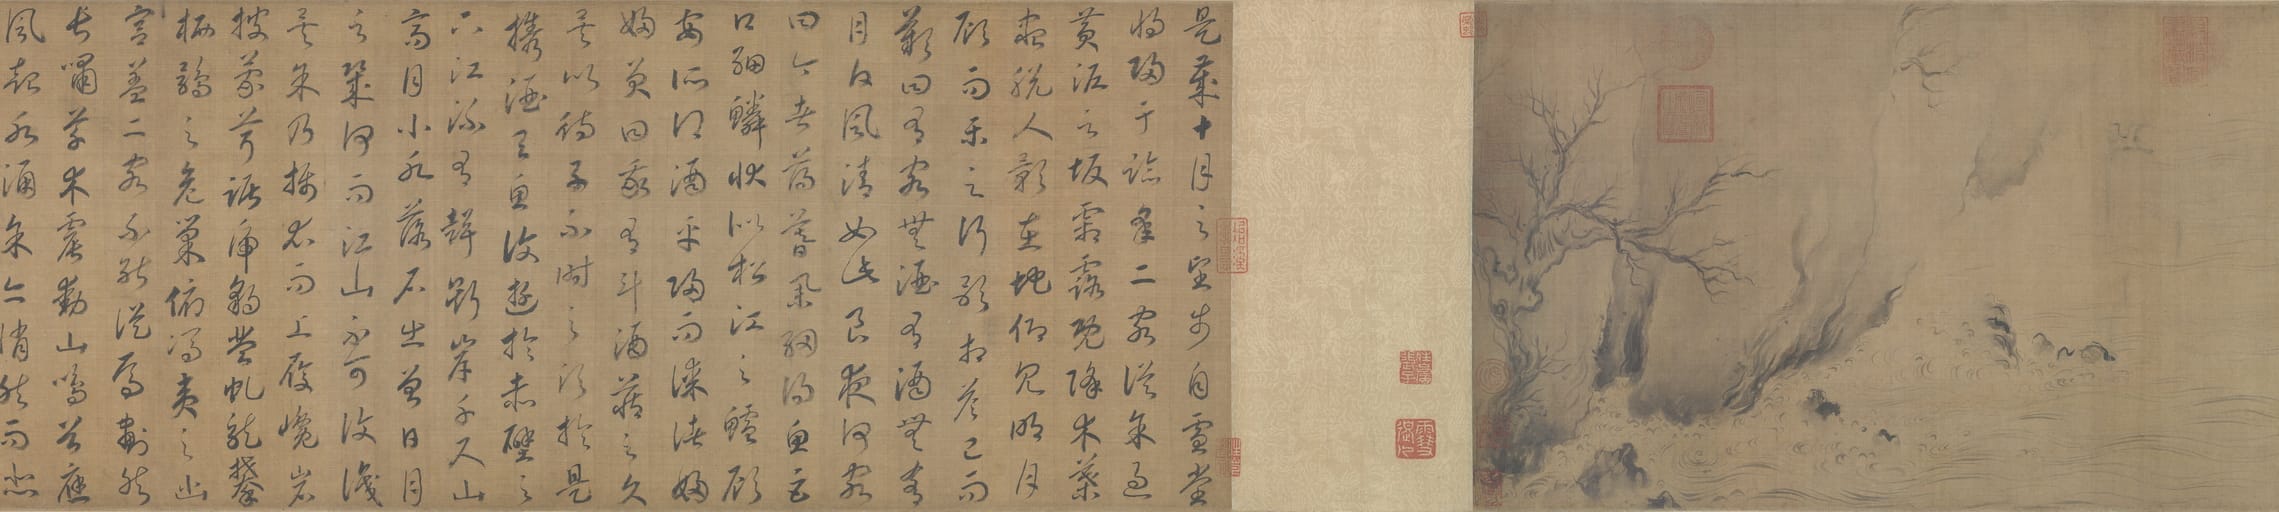 是歲十月之望步自雪堂
將歸于臨皋二客從余過
黃泥之坂霜露既降木葉
盡脫人影在地仰見明月
顧而樂之行歌相答已而
歎曰有客無酒有酒無肴
月白風清如此良夜何客
曰今者薄暮舉網得魚巨
口細鱗狀似松江之鱸顧
安所得酒乎歸而謀諸婦
婦曰我有斗酒藏之久
矣以待子不時之須於是
攜酒與魚復遊於赤壁之
下江流有聲斷岸千尺山
高月小水落石出曾日月
之幾何而江山不可復識
矣余乃攝衣而上履巉岩
披蒙茸踞虎豹登虬龍攀
栖鶻之危巢俯馮夷之幽
宮蓋二客不能從焉劃然
長嘯草木震動山鳴谷應
風起水涌余亦悄然而悲